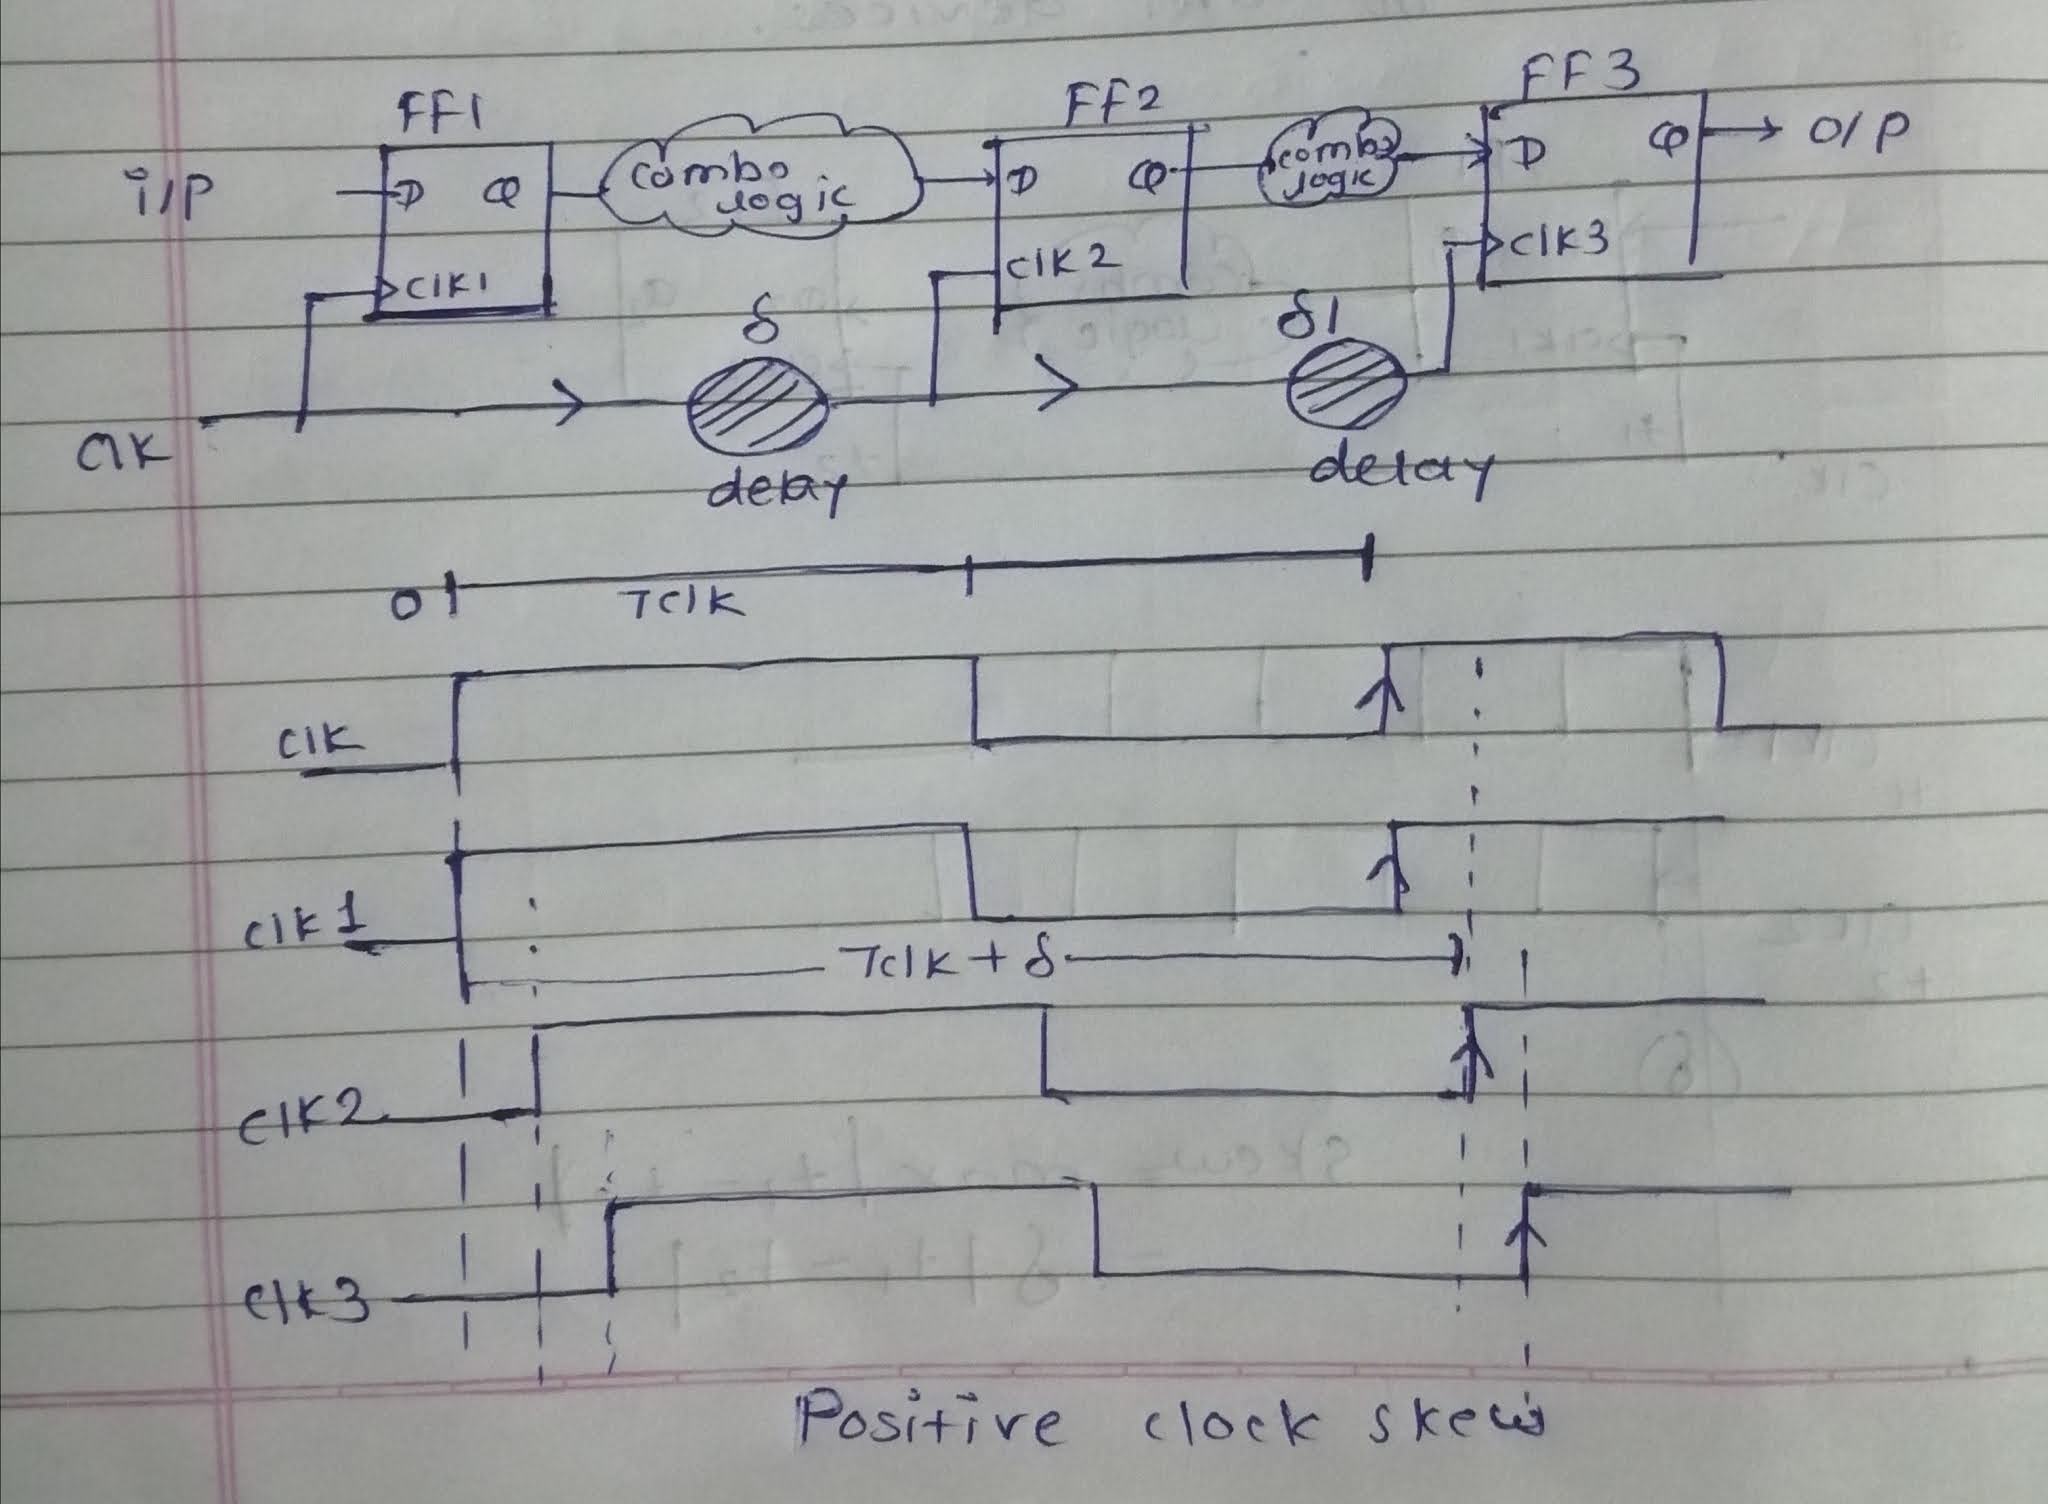 FF1 FF2 FF3
i/P D Q combo logic D Q combo logic D Q O/P
CIK1 CIK2 CIK3
δ δ1
CIK delay delay
0 TCIK
CIK
CIK1
TCIK + δ
CIK2
CIK3
Positive clock skew